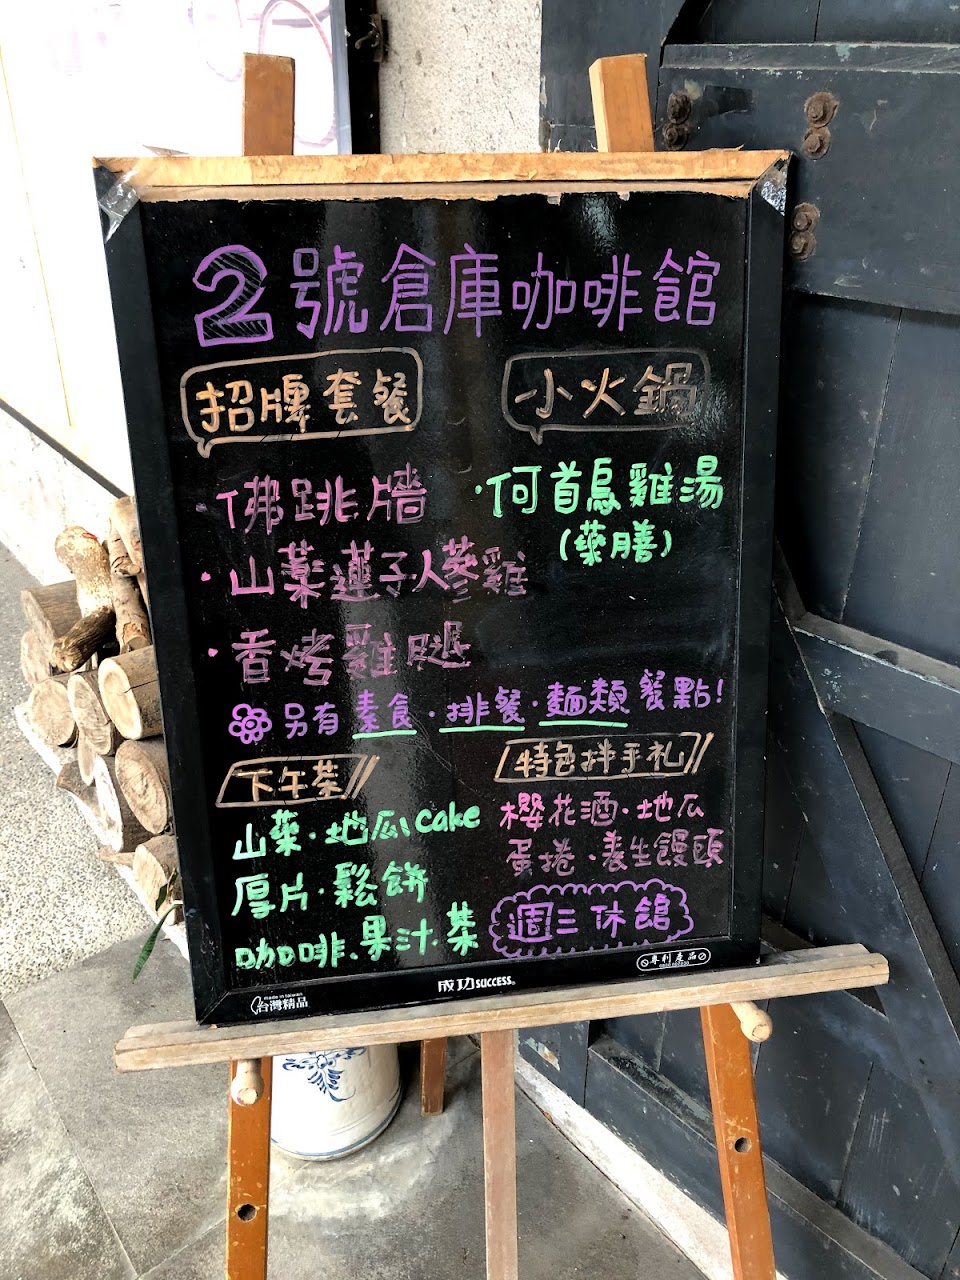 2號倉庫咖啡館
招牌套餐
·佛跳牆
·山藥蓮子人蔘雞
·香烤雞腿
小火鍋
·何首烏雞湯
(藥膳)
另有素食·排餐·麵類餐點!
下午茶
山藥·地瓜cake
厚片·鬆餅
咖啡·果汁·茶
特色拌手禮
櫻花酒·地瓜
蛋捲·養生饅頭
週三休館
made in taiwan
台灣精品
成功SUCCESS®
專利產品